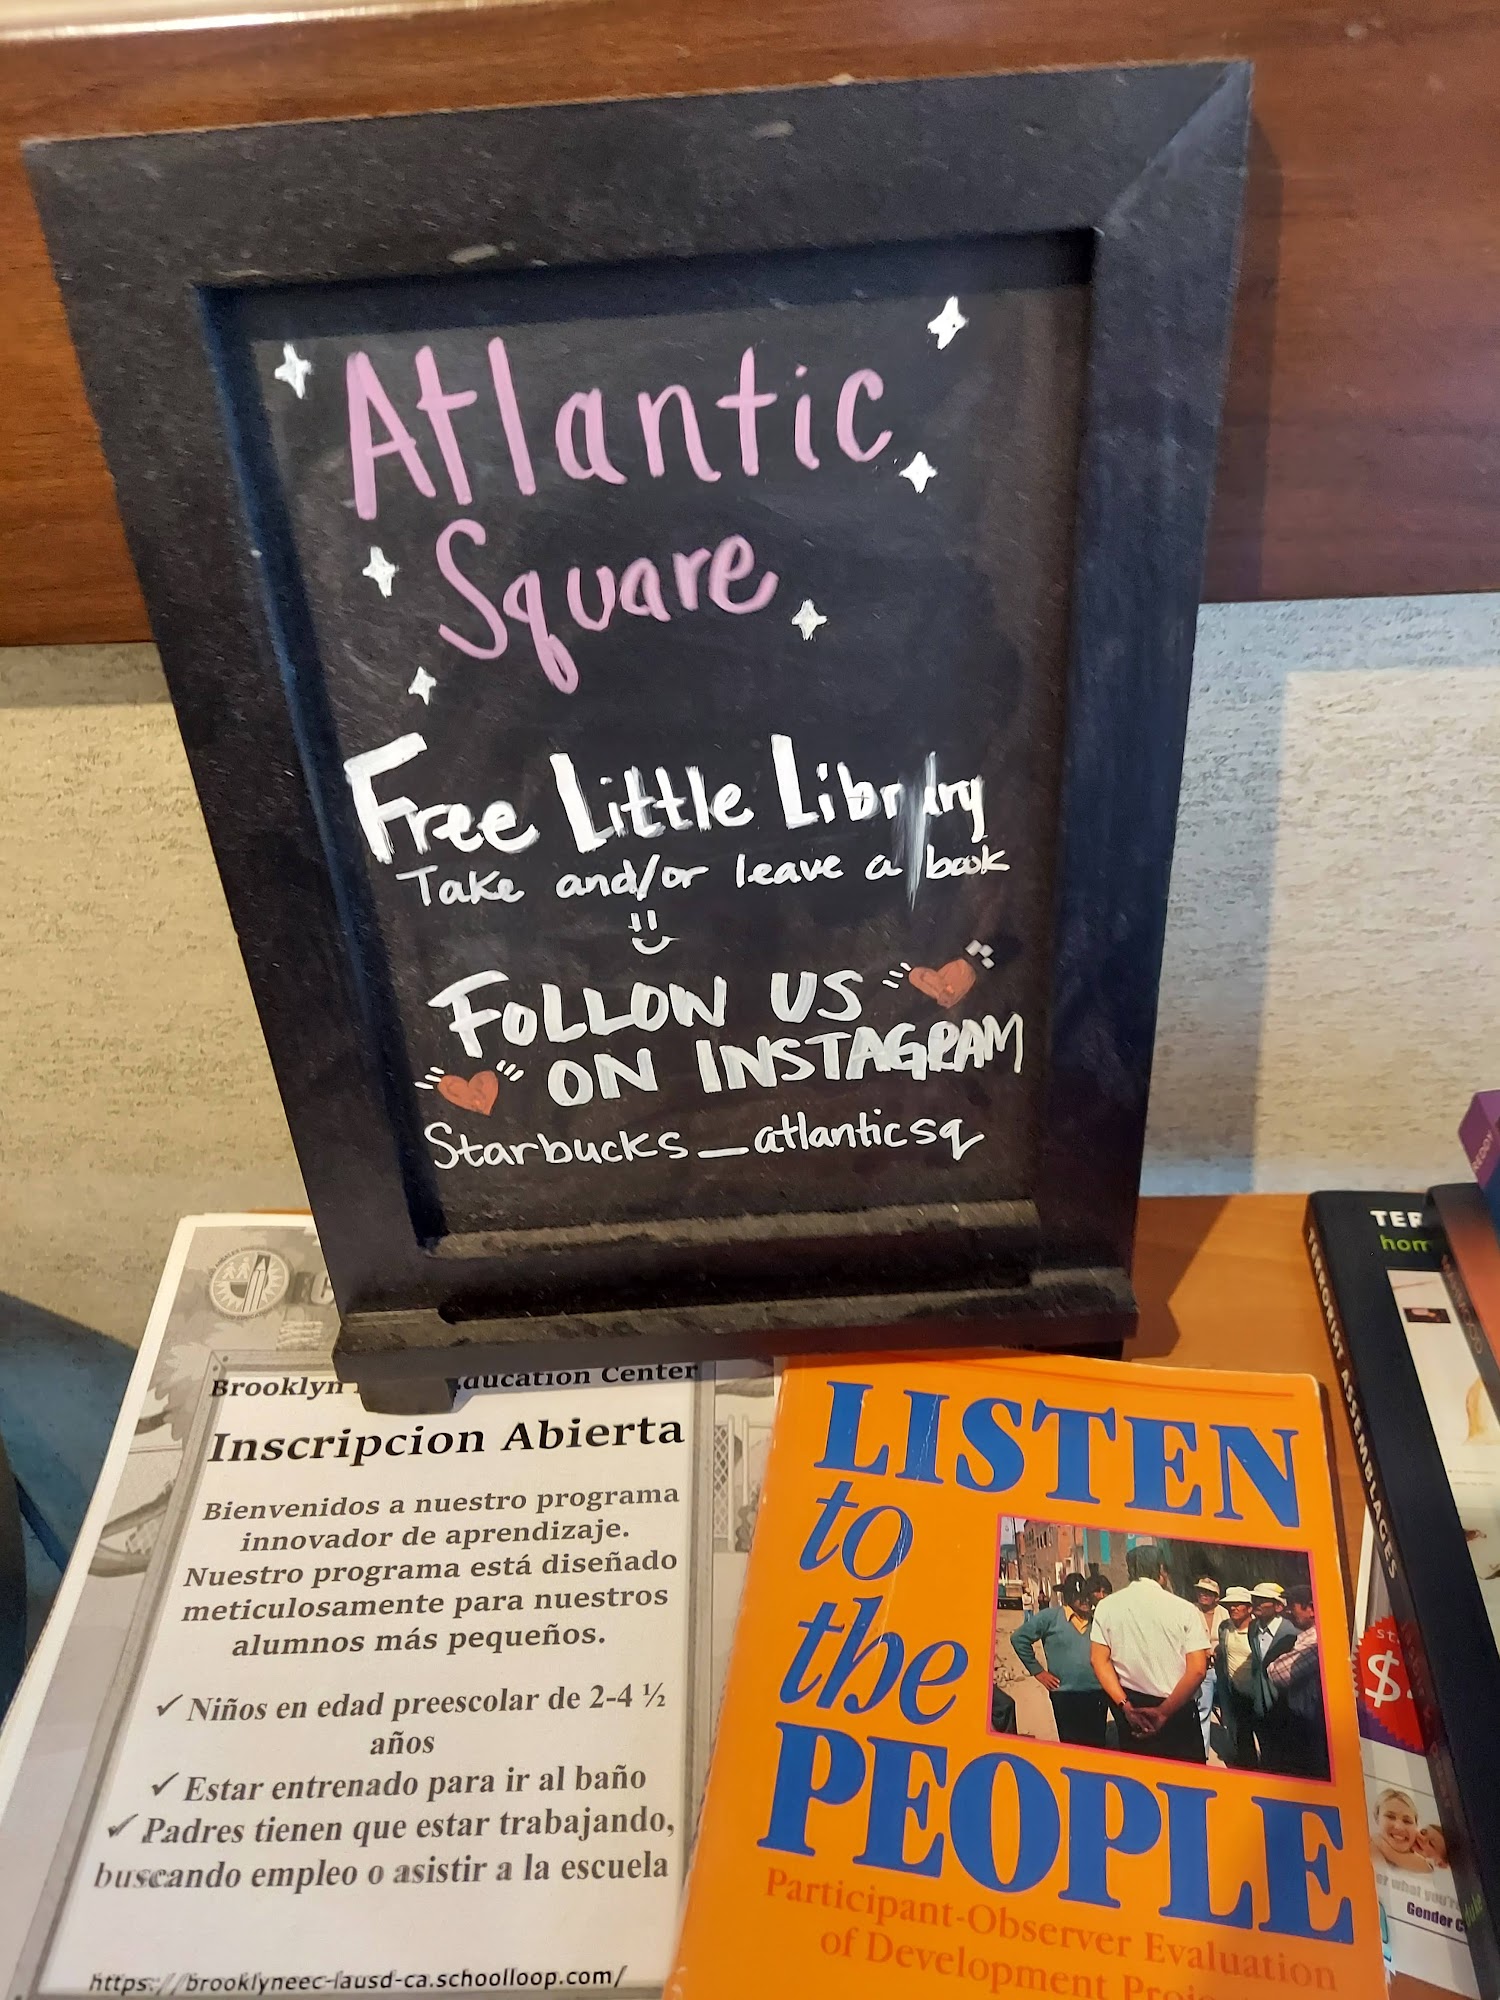 Atlantic
Square
Free Little Library
Take and/or leave a book
FOLLOW US
ON INSTAGRAM
Starbucks_atlanticsq
Brooklyn
Education Center
Inscripcion Abierta
Bienvenidos a nuestro programa
innovador de aprendizaje.
Nuestro programa está diseñado
meticulosamente para nuestros
alumnos más pequeños.
✓ Niños en edad preescolar de 2-4 ½
años
✓ Estar entrenado para ir al baño
✓ Padres tienen que estar trabajando,
buscando empleo o asistir a la escuela
https://brooklyneec-lausd-ca.schoolloop.com/
LISTEN
to
the
PEOPLE
Participant-Observer Evaluation
of Development
TERRORIST ASSEMBLAGES
TER
hom
REDDY
$
Gender